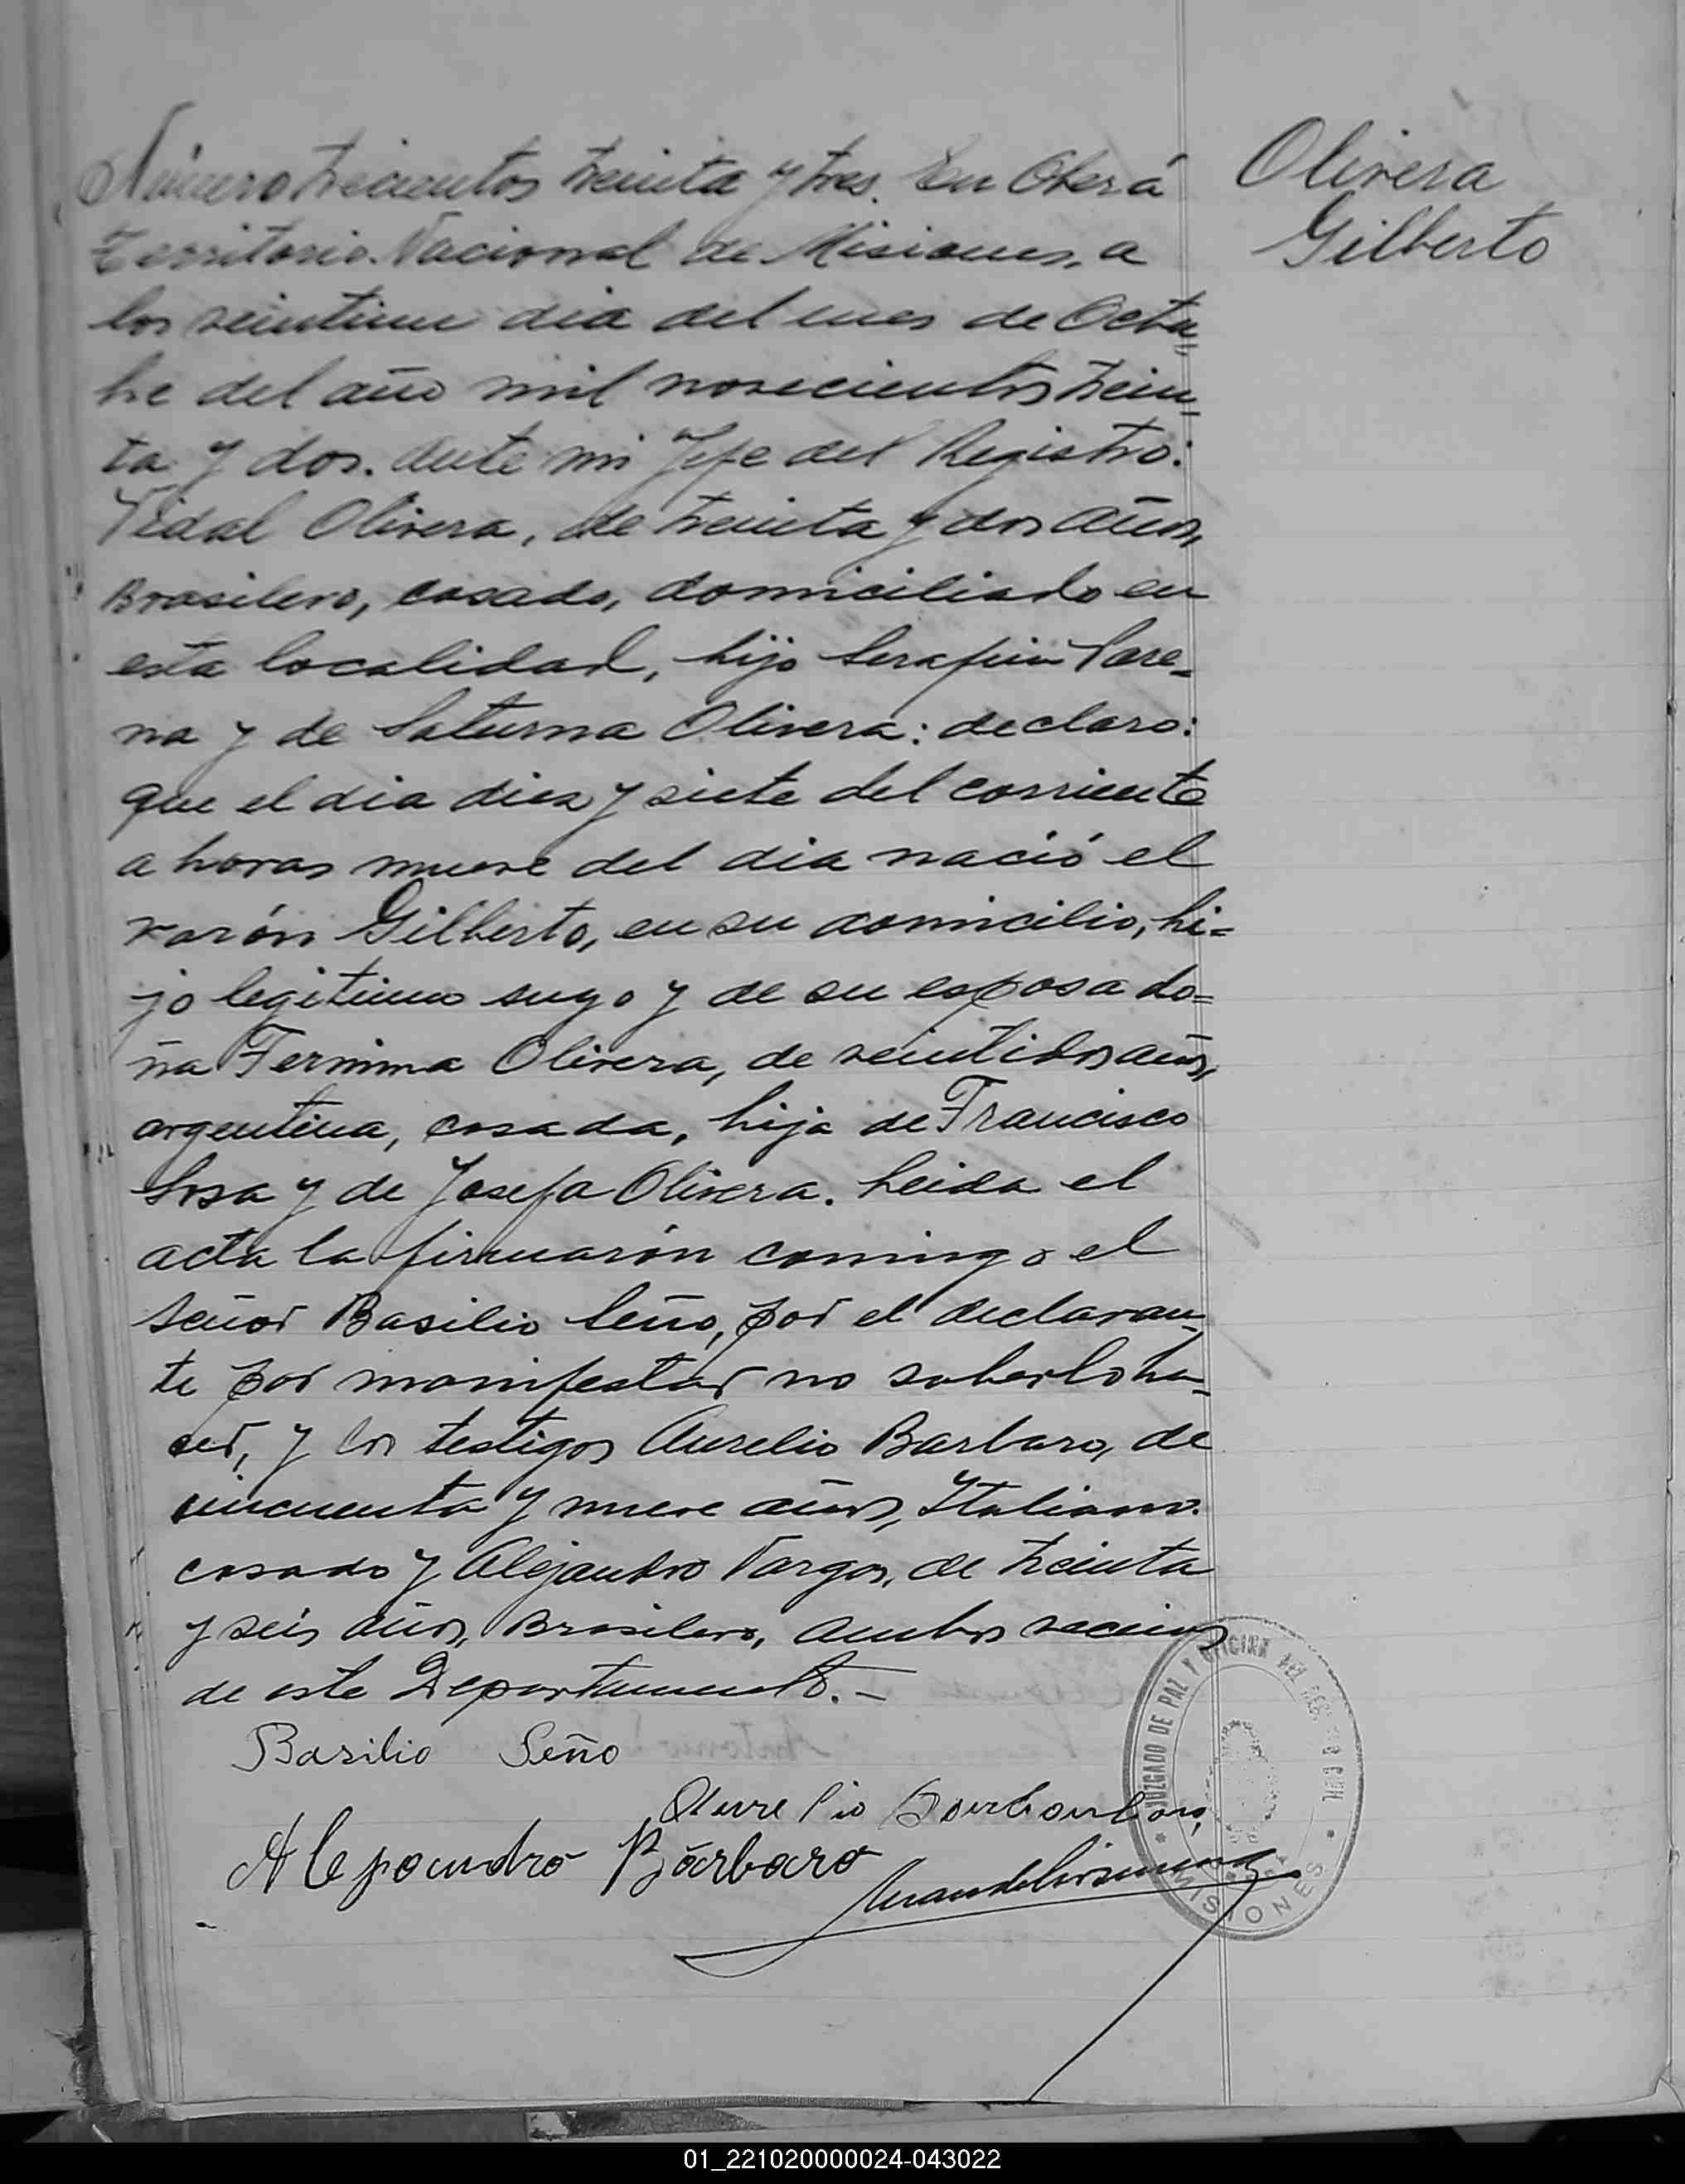 Olivera
Gilberto
Número trecientos treinta y tres. En Oberá
Territorio Nacional de Misiones, a
los veintiun dia del mes de Octu=
bre del año mil novecientos trein_
ta y dos. Ante mi Jefe del Registro:
Vidal Olivera, de treinta y dos años,
Brasilero, casado, domiciliado en
esta localidad, hijo Serafin Pare_
na y de Saturna Olivera: declaro:
que el dia diez y siete del corriente
a horas nueve del dia nació el
varón Gilberto, en su domicilio, hi=
jo legitimo suyo y de su esposa do=
ña Fermina Olivera, de veintidos años,
argentina, casada, hija de Francisco
Sosa y de Josefa Olivera. Leida el
acta la firmarón comingo el
señor Basilio Seño, por el declaran_
te por manifestar no saberlo ha_
cer, y los testigos Aurelio Barbaro, de
cincuenta y nueve años, Italiano.
casado y Alejandro Vargas, de treinta
y seis años, Brasilero, ambos vecinos
de este Departamento.-
Basilio Seño
Aurelio
Alejoandro Bárbaro
JUZGADO DE PAZ Y OFICINA DEL REG. CIVIL
MISIONES
01_221020000024-043022